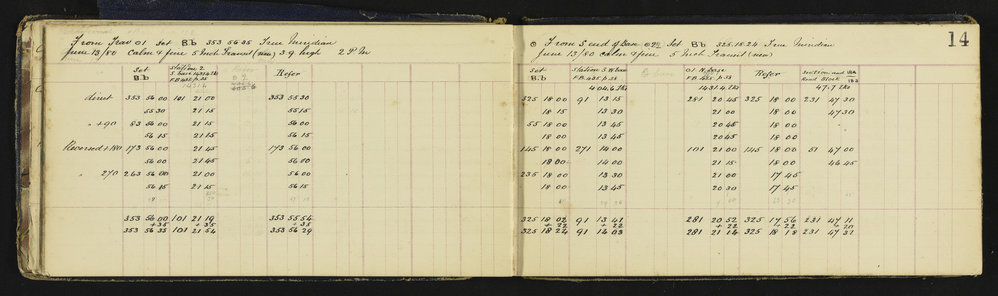 From Trav 01 Set B.b 353 56 35 True Meridian
June 13/80 Calm & fine 5 Inch Transit (new) 3.9 high 2 PM
Set Station 2 Refer
B.b S. base 1431.4 lks
F.B 435 p. 38
1431.4
direct 353 56 00 101 21 00 353 55 30
55 30 21 15 55 15
" +90 83 56 00 21 15 56 00
56 15 21 15 56 15
Reversed +180 173 56 00 21 45 173 56 00
56 00 21 45 56 00
" 270 263 56 00 21 00 56 00
56 15 21 15 56 15
353 56 00 101 21 19 353 55 54
+35 +35 +35
353 56 35 101 21 54 353 56 29
14
From S end of base Set B.b 325.18.24 True Meridian
June 13/80 calm & fine 5 Inch Transit (new)
Set Station 3. W base 01 N. base Refer Section and
B.b F.B 435 p. 38 F.B 435 p. 38 Road Block
404.6 lks 1431.4 lks 47.7 lks
325 18 00 91 13 15 281 20 45 325 18 00 231 47 30
18 15 13 30 21 00 18 00 47 30
55 18 00 13 45 20 45 18 00
18 00 13 45 20 45 18 00
145 18 00 271 14 00 101 21 00 145 18 00 51 47 00
18 00 14 00 21 15 18 00 46 45
235 18 00 13 30 21 00 17 45
18 00 13 45 20 30 17 45
325 18 02 91 13 41 281 20 52 325 17 56 231 47 11
+22 +22 +22 +22 +20
325 18 24 91 14 03 281 21 14 325 18 18 231 47 31